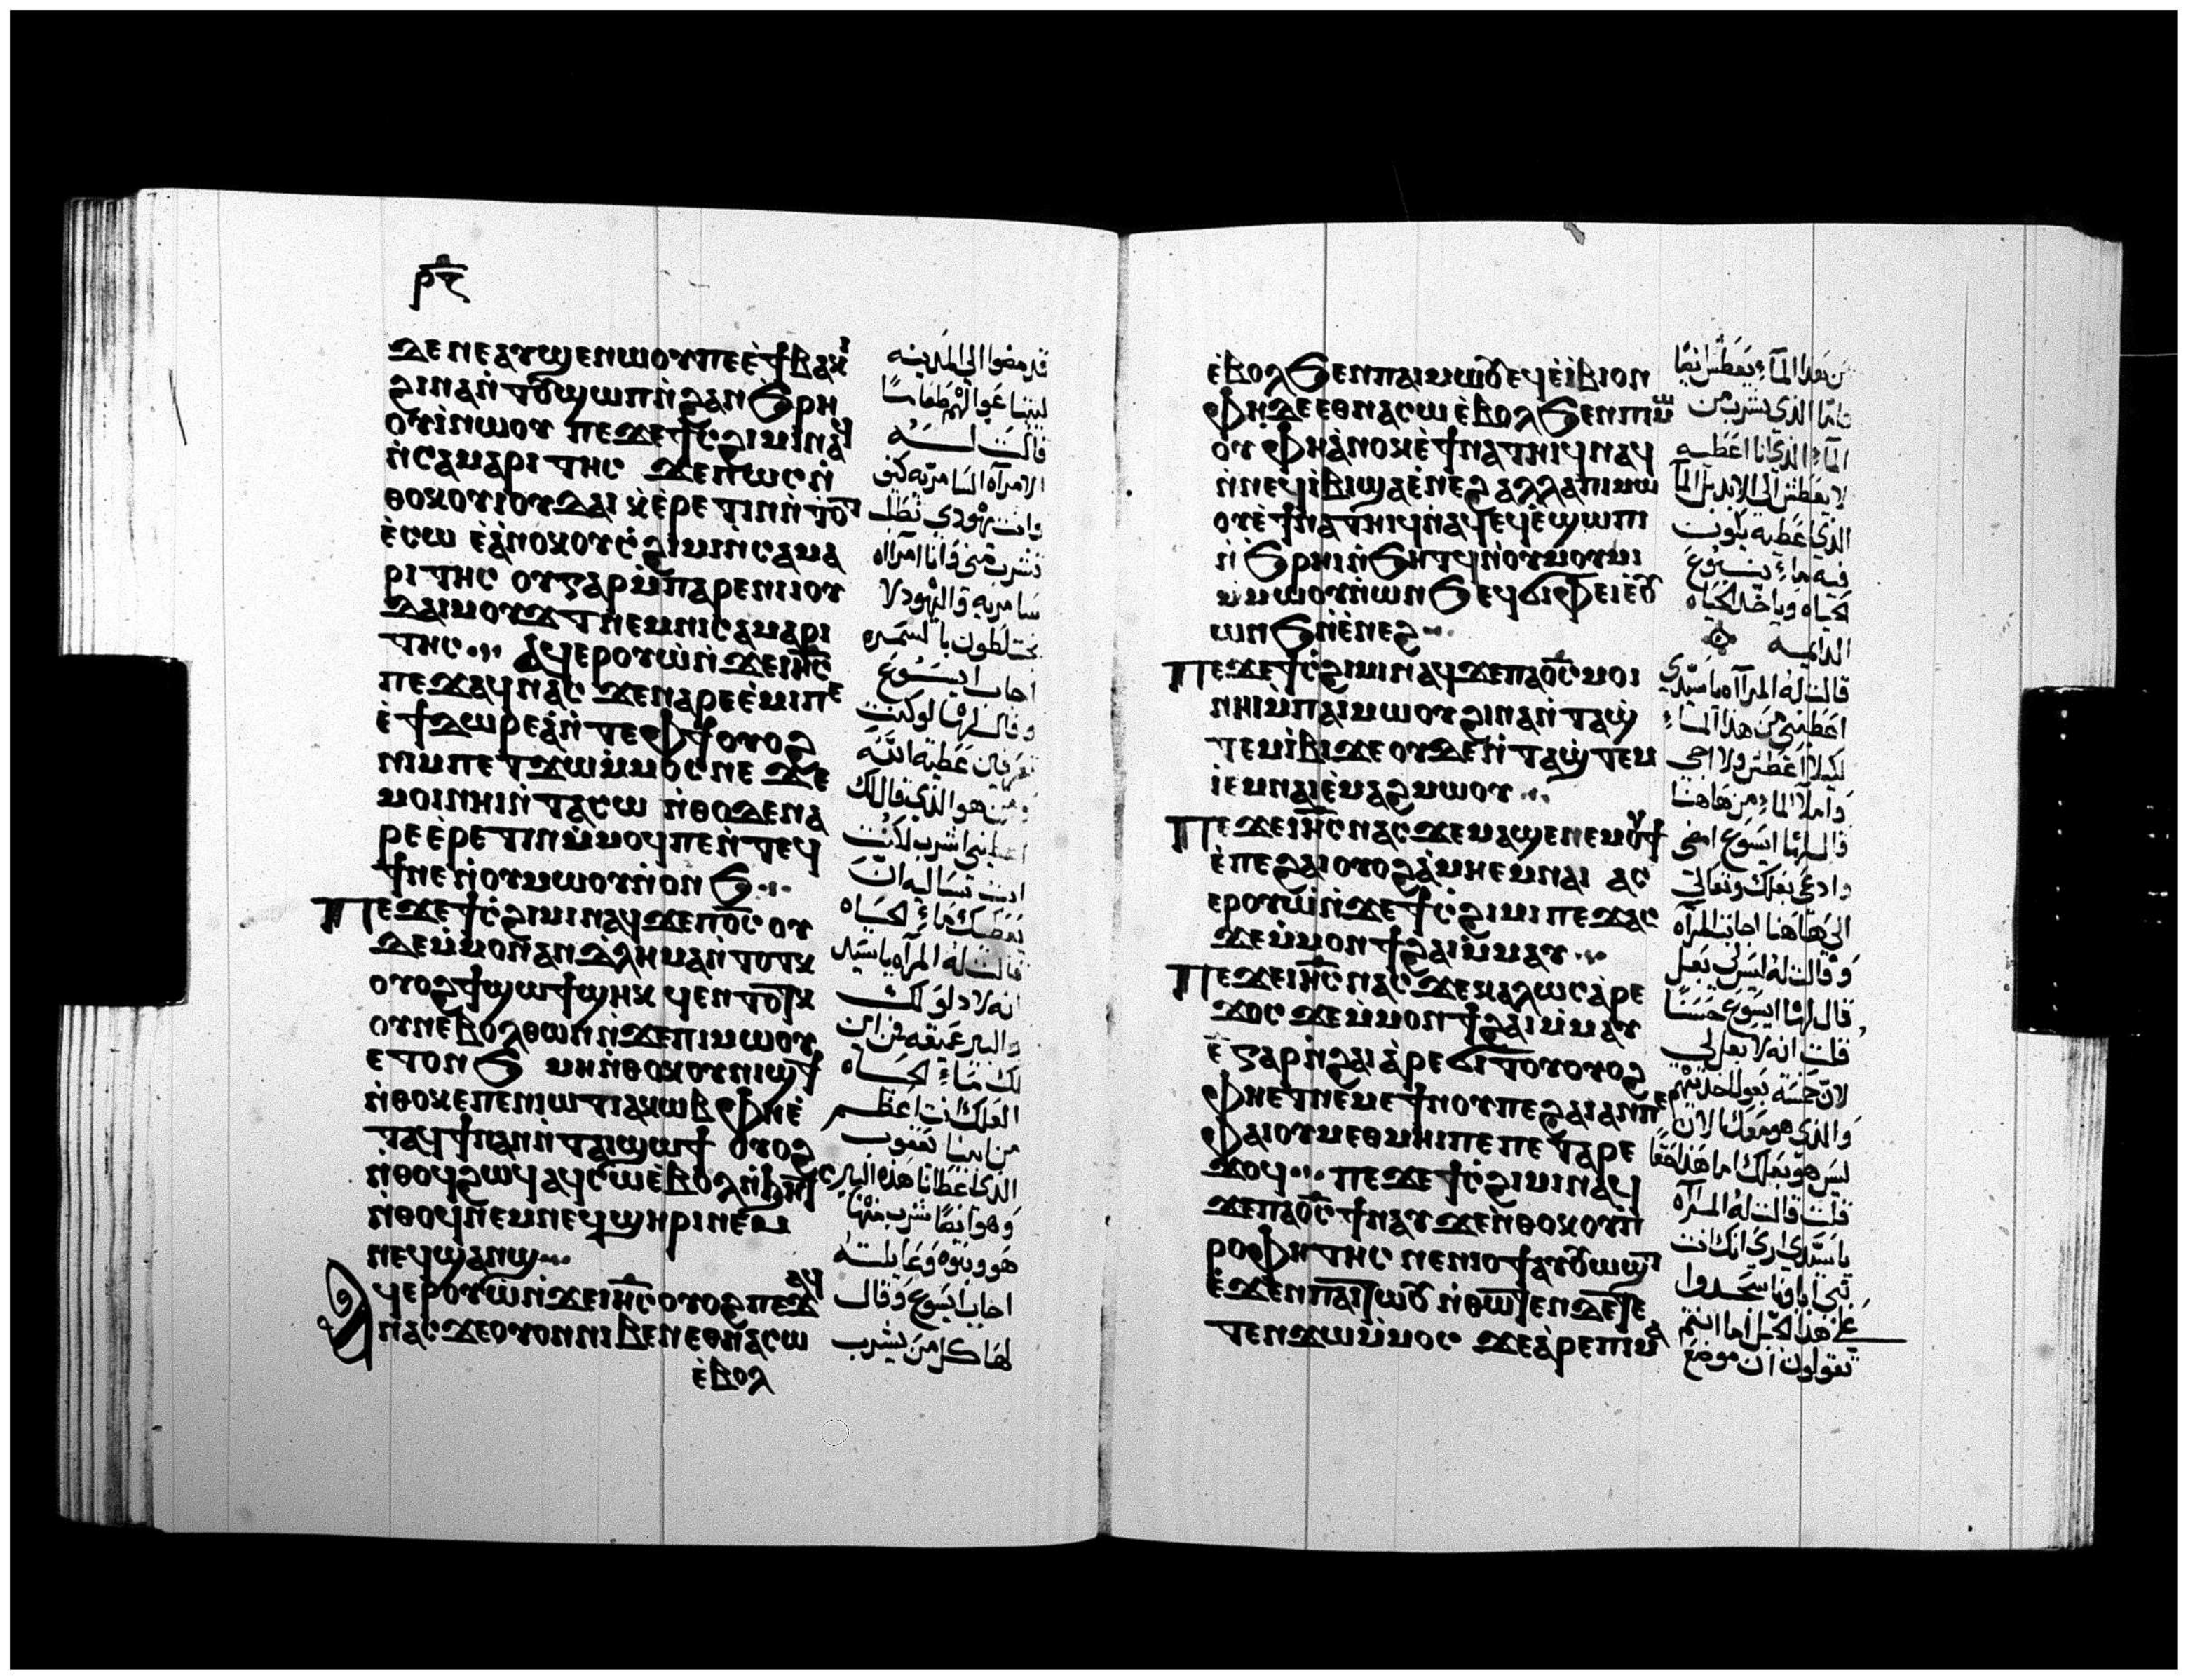 ⲣ︦ⲋ︦
ⲇⲉ ⲛⲉⲁⲩϣⲉⲛⲱⲟⲩⲡⲉ ⲉ̀ϯⲃⲁⲕⲓ
ϩⲓⲛⲁⲛ̀ⲧⲟⲩϣⲱⲡⲛ̀ϩⲁⲛϧⲣⲏ
ⲟⲩⲓ̀ⲛⲱⲟⲩ ⲡⲉϫⲉϯⲥϩⲓⲙⲓⲛⲁϥ
ⲛ̀ⲥⲁⲙⲁⲣⲓⲧⲏⲥ ϫⲉⲡⲱⲥⲛ̀
ⲑⲟⲕⲟⲩⲓⲟⲩⲇⲁⲓ ⲕ̀ⲉⲣⲉⲧⲓⲛⲛ̀ⲧⲟⲧ
ⲉ̀ⲥⲱ ⲉ̀ⲁⲛⲟⲕⲟⲩⲥ̀ϩⲓⲙⲓⲛ̀ⲥⲁⲙⲁ
ⲣⲓⲧⲏⲥ ⲟⲩⲅⲁⲣⲙ̀ⲡⲁⲣⲉⲛⲓⲓⲟⲩ
ⲇⲁⲓⲙⲟⲩϫⲧ ⲛⲉⲙⲛⲓⲥⲁⲙⲁⲣⲓ
ⲧⲏⲥ ⲁϥⲉⲣⲟⲩⲱ̀ⲛ̀ϫⲉⲓⲏ̅ⲥ̅
ⲡⲉϫⲁϥⲛⲁⲥ ϫⲉⲛⲁⲣⲉⲉ̀ⲙⲓⲡⲉ
ⲉ̀ϯⲇⲱⲣⲉⲁⲛ̀ⲧⲉⲫϯⲟⲩⲟϩ
ⲛⲓⲙⲡⲉⲧϫⲱⲙ̀ⲙⲟⲥⲛⲉ ϫⲉ
ⲙⲟⲓⲛⲏⲓⲛ̀ⲧⲁⲥⲱ ⲛ̀ⲑⲟⲇⲉⲛⲁ
ⲣⲉⲉ̀ⲣⲉⲧⲓⲛⲙ̀ⲙⲟϥⲡⲉⲛ̀ⲧⲉϥ
ϯⲛⲉⲛ̀ⲟⲩⲙⲱⲟⲩⲛ̀ⲟⲛϧ
ⲡⲉϫⲉϯⲥ̀ϩⲓⲙⲓⲛⲁϥϫⲉⲡⲟ̅ⲥ̅ ⲟⲩ
ⲇⲉⲙ̀ⲙⲟⲛⲛⲁⲛⲇⲗⲏⲙⲁⲛ̀ⲧⲟⲧⲕ
ⲟⲩⲟϩϯϣⲱϯϣⲏⲕ
ⲟⲩⲛⲉⲃⲟⲗⲑⲱⲛⲛ̀ϫⲉⲡⲓⲙⲱⲟⲩ
ⲉⲧⲟⲛϧ ⲙⲏⲛ̀ⲑⲟⲕⲟⲩⲛⲓϣϯ
ⲛ̀ⲑⲟⲕⲉⲡⲉⲛⲓⲱⲧⲓⲁⲕⲱⲃ ⲫⲏⲉ̀
ⲧⲁϥϯⲛⲁⲛⲛ̀ⲧⲁⲓϣⲱϯ ⲟⲩⲟϩ
ⲛ̀ⲑⲟϥϩⲱϥⲁϥⲥⲱⲉ̀ⲃⲟⲗⲛ̀ϧⲏⲧ
ⲛ̀ⲑⲟϥⲛⲉⲙⲛⲉϥϣⲏⲣⲓⲛⲉⲙ
ⲛⲉϥϣⲁⲛϣ
ⲁϥⲉⲣⲟⲩⲱ̀ⲛ̀ϫⲉⲓⲏ̅ⲥ̅ⲟⲩⲟϩⲡⲉϫⲁϥ
ⲛⲁⲥϫⲉⲟⲩⲟⲛⲛⲓⲃⲉⲛⲉⲑⲛⲁⲥⲱ
ⲉ̀ⲃⲟⲗ
قد مضوا الى المدينه
ليبتاعوا لهم طعامًا
قالت له
الامرآه السامريه كيف
وانت يهودي تطلب
تشرب مني وانا امرآاه
سامريه واليهود لا
يختلطون بالسمره
اجاب ايسوع
وقال لها لو كنت
تعرفين عطية الله
ومن هو الذي قال لك
اعطيني اشرب لكنت
انت تساليه ان
يعطيك ماء الحياه
قالت له المرآه ياسيد
انه لا دلو لك
والبير عميقه فمن اين
لك ماء الحياه
العلك انت اعظم
من ابينا يعقوب
الذي اعطانا هذه البير
وهو ايضًا شرب منها
هو وبنوه وماشيته
اجاب ايسوع وقال
لها كل من يشرب
ⲉ̀ⲃⲟⲗϧⲉⲛⲡⲁⲓⲙⲱⲟⲩⲉϥⲉ̀ⲓ̀ⲃⲓⲟⲛ
ⲫⲏⲇⲉⲉⲑⲛⲁⲥⲱⲉ̀ⲃⲟⲗϧⲉⲛⲡⲓⲙⲱ
ⲟⲩ ⲫⲏⲁ̀ⲛⲟⲕⲉ̀ϯⲛⲁⲧⲏⲓϥⲛⲁϥ
ⲛ̀ⲛⲉϥⲓ̀ⲃⲓϣⲁⲉ̀ⲛⲉϩ ⲁⲗⲗⲁⲡⲓⲙⲱ
ⲟⲩⲉ̀ϯⲛⲁⲧⲏⲓϥⲛⲁϥⲉϥⲉ̀ϣⲱⲡⲓ
ⲛ̀ϧⲣⲏⲓⲛ̀ϧⲏⲧϥⲛ̀ⲟⲩⲙⲟⲩⲙⲓ
ⲙ̀ⲙⲱⲟⲩⲛ̀ⲱⲛϧⲉϥϭⲓⲫⲉⲓⲉ̀ⲟⲩ
ⲱⲛϧⲛ̀ⲉⲛⲉϩ
ⲡⲉϫⲉϯⲥ̀ϩⲓⲙⲓⲛⲁϥϫⲉⲡⲁⲟ̅ⲥ̅ⲙⲟⲓ
ⲛⲏⲓⲙ̀ⲡⲁⲓⲙⲱⲟⲩϩⲓⲛⲁⲛ̀ⲧⲁϣ̀
ⲧⲉⲙⲓ̀ⲃⲓϫⲉ ⲟⲩⲇⲉⲛ̀ⲧⲁϣ̀ⲧⲉⲙ
ⲓ̀ⲉⲙⲛⲁⲓⲉ̀ⲙⲁϩⲙⲱⲟⲩ
ⲡⲉϫⲉⲓⲏ̅ⲥ̅ⲛⲁⲥϫⲉⲙⲁϣⲉⲛⲉⲙⲟⲩϯ
ⲉ̀ⲡⲉϩⲁⲓⲟⲩⲟϩⲁ̀ⲙⲏⲉⲙⲛⲁⲓ ⲁⲥ
ⲉⲣⲟⲩⲱ̀ⲛ̀ϫⲉϯⲥ̀ϩⲓⲙⲓ ⲡⲉϫⲁⲥ
ϫⲉⲙ̀ⲙⲟⲛϯϩⲁⲓⲙ̀ⲙⲁⲩ
ⲡⲉϫⲉⲓⲏ̅ⲥ̅ⲛⲁⲥϫⲉⲕⲁⲗⲱⲥⲁ̀ⲣⲉ
ϫⲟⲥ ϫⲉⲙ̀ⲙⲟⲛϯϩⲁⲓⲙ̀ⲙⲁⲩ
ⲉ̅ⲅⲁⲣⲛ̀ϩⲁⲓⲁ̀ⲣⲉϭⲓⲧⲟⲩⲟⲩⲟϩ
ⲫⲏⲉⲧⲛⲉⲙⲉϯⲛⲟⲩⲡⲉϩⲁⲓⲁⲛⲡⲉ
ⲫⲁⲓⲟⲩⲙⲉⲑⲙⲏⲓⲡⲉⲡⲉⲧⲁⲣⲉ
ϫⲟϥ ⲡⲉϫⲉϯⲥ̀ϩⲓⲙⲓⲛⲁϥ
ϫⲉⲡⲁⲟ̅ⲥ̅ϯⲛⲁⲩ ϫⲉⲛ̀ⲑⲟⲕⲟⲩⲡ̀
ⲣⲟⲫⲏⲧⲏⲥ ⲛⲉⲛⲓⲟϯⲁⲩⲟⲩⲱϣⲧ
ⲧⲉⲛϫⲱⲙ̀ⲙⲟⲥ ϫⲉⲁ̀ⲣⲉⲡⲓⲙⲁ
من هذا المآء يعطش ايضًا
فاما الذي يشرب من
المآء الذي انا اعطيه
لا يعطش الى الابد بل المآ
الذي اعطيه يكون
فيه ماء ينبوع
الدايمه
قالت له المرآاه ياسيدي
اعطيني من هذا الماء
لكيلا اعطش ولا اجي
واملا الماء من هاهنا
قال لها ايسوع امضي
وادعي بعلك وتعالي
الي هاهنا اجابت المرآه
وقالت له ليس لي بعل
قال لها ايسوع حسنًا
قلت انه لا بعل لي
لان خمسة بعوله اخذتيهم
والذي هو معك الان
ليس هو بعلك اما هذا حقًا
قلت قالت له المرآه
ياسيدي ارى انك انت
نبي اباونا سجدوا
على هذا الجبل اما انتم
تقولون ان موضع